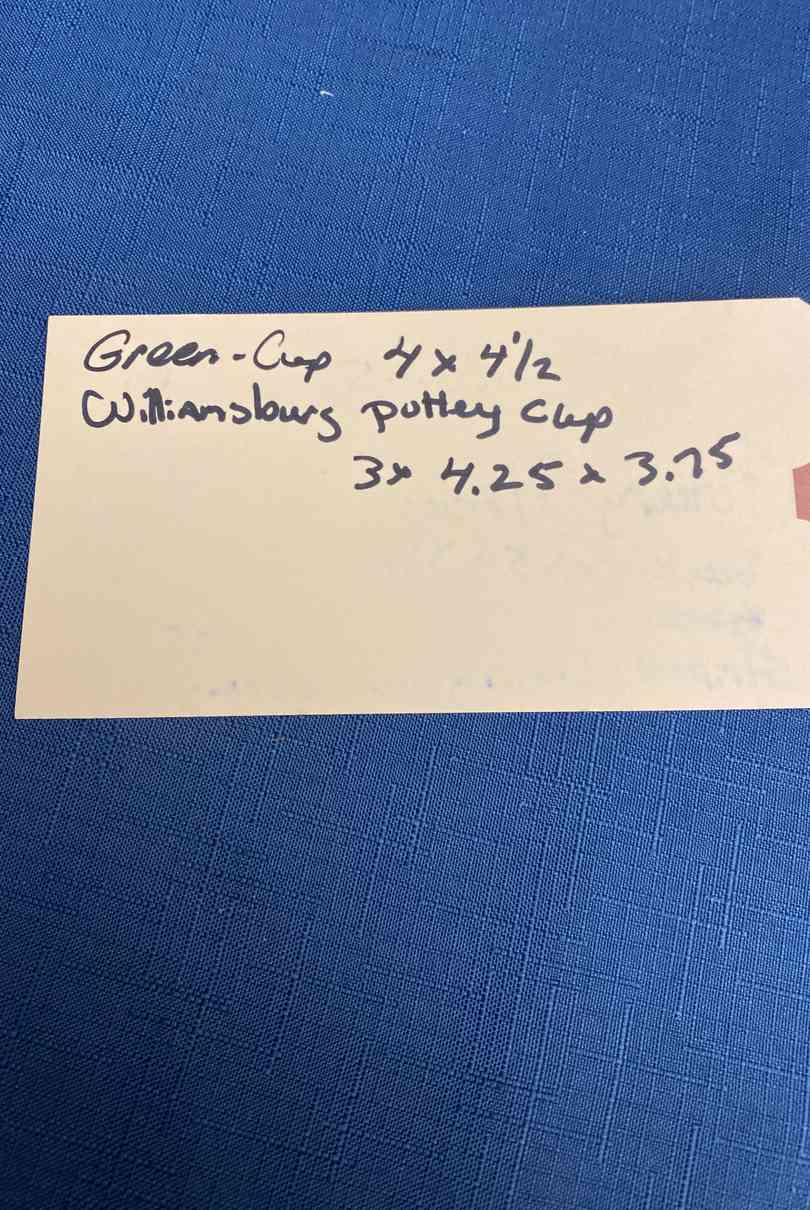 Green-Cup 4 x 4 1/2
Williamsburg pottey Cup
3x 4.25 x 3.75